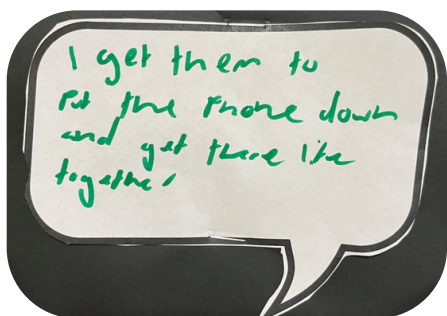 I get them to
Put the Phone down
and get there life
together